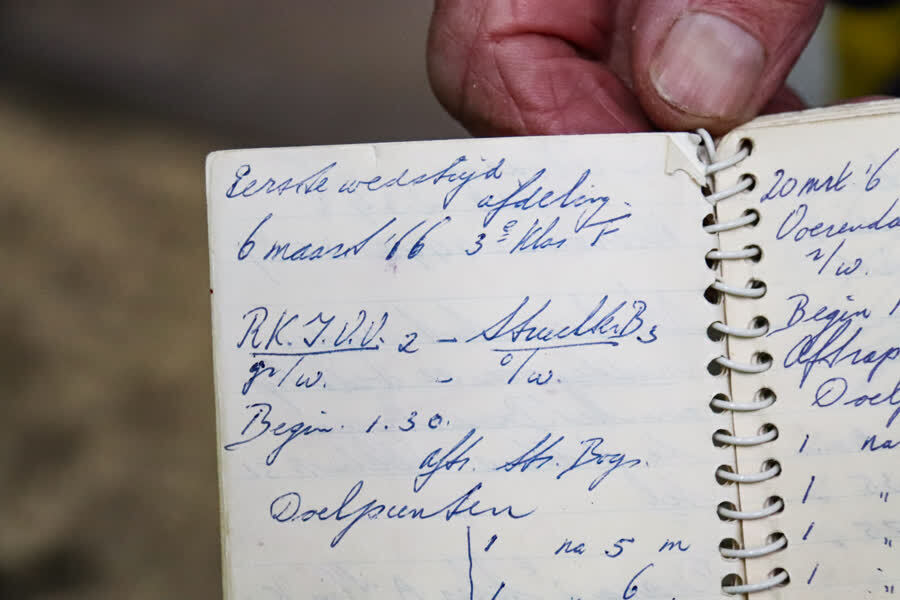 Eerste wedstrijd
afdeling.
6 maart '66 3e Klas F
R.K.J.V.V. 2 - B 3
gr/w. - o/w.
Begin. 1.30.
aftr. Str. Boys.
Doelpunten
1 na 5 m
6
20 mrt. '6
Voerenda
/w.
Begin 1
Aftrap
Doelp
1 na
1 "
1 "
1 "